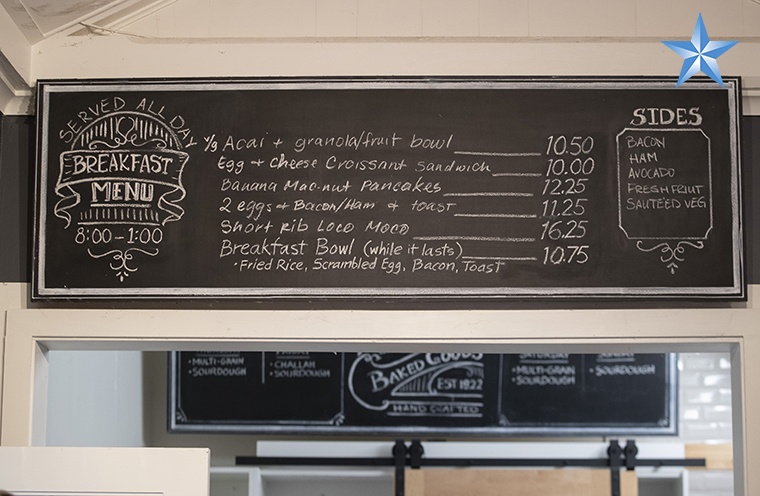 SERVED ALL DAY
BREAKFAST
MENU
8:00-1:00
V/g Acai + granola/fruit bowl 10.50
Egg + cheese Croissant Sandwich 10.00
Banana Mac-nut Pancakes 12.25
2 eggs + Bacon/Ham + toast 11.25
Short Rib Loco Moco 16.25
Breakfast Bowl (while it lasts) 10.75
·Fried Rice, Scrambled Egg, Bacon, Toast
SIDES
BACON
HAM
AVOCADO
FRESH FRIUT
SAUTE'ED VEG
·MULTI-GRAIN
·SOURDOUGH
·CHALLAH
·SOURDOUGH
BAKED GOODS
EST 1922
HAND CRAFTED
SATURDAY
·MULTI-GRAIN
·SOURDOUGH
·SOURDOUGH